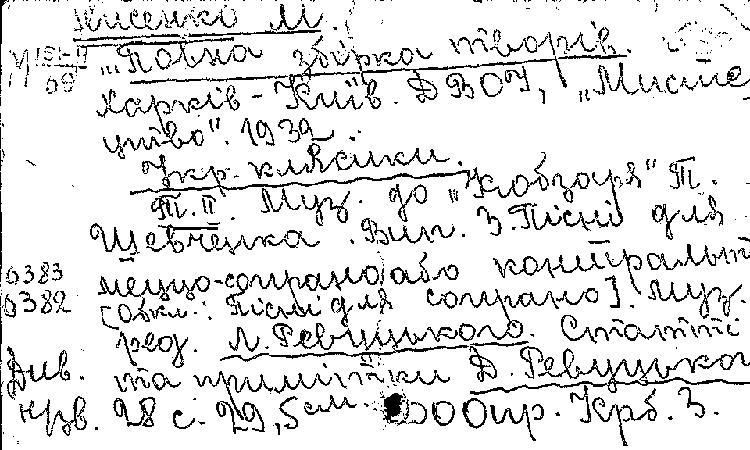 Лисенко М.
"Повна збірка творів.
Харків-Київ. ДВОУ, "Мисте-
цтво". 1932.
Укр. клясики.
Т. ІІ. Муз. до "Кобзаря" Т.
Шевченка. Вип. 3. Пісні для
6383 меццо-сопрано або контральт
6382 [обкл.: Пісні для сопрано]. Муз.
ред. Л. Ревуцького. Статті
Див. та примітки Д. Ревуцько
28 с. 29,5 см. 500 пр. Крб. 3.